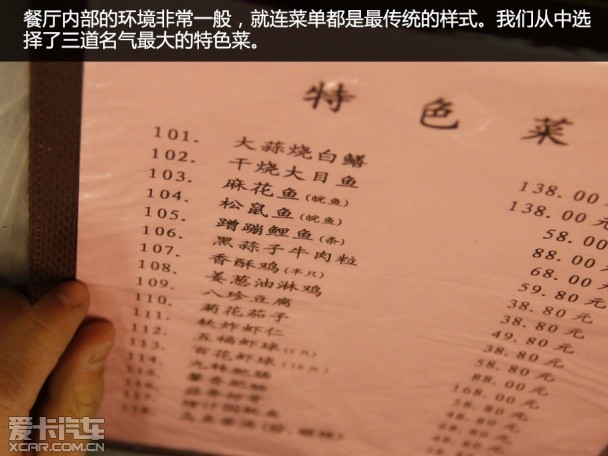 餐厅内部的环境非常一般，就连菜单都是最传统的样式。我们从中选
择了三道名气最大的特色菜。
特 色 菜
101. 大蒜烧白鳝 138.00元
102. 干烧大目鱼 138.00元
103. 麻花鱼(皖鱼) 58.00元
104. 松鼠鱼(皖鱼) 88.00元
105. 蹭蹦鲤鱼(条) 68.00元
106. 黑蒜子牛肉粒 59.80元
107. 香酥鸡(半只) 38.80元
108. 姜葱油淋鸡 38.80元
109. 八珍豆腐 49.80元
110. 菊花茄子 38.80元
111. 软炸虾仁 58.80元
112. 五福虾球 88.00元
113. 百花虾球 168.00元
114. 九转肥肠 58.80元
115.
116.
爱卡汽车
XCAR.COM.CN